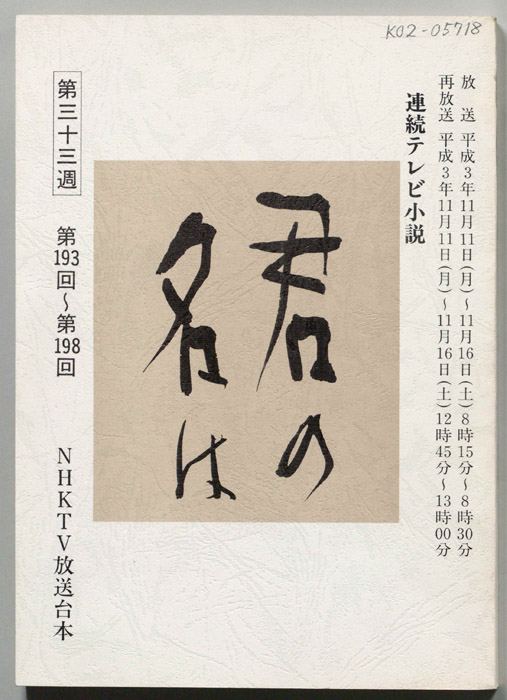 K02-05718
放　送　平成3年11月11日(月)～11月16日(土)8時15分～8時30分
再放送　平成3年11月11日(月)～11月16日(土)12時45分～13時00分
連続テレビ小説
君の
名は
第三十三週
第193回～第198回
NHKTV放送台本